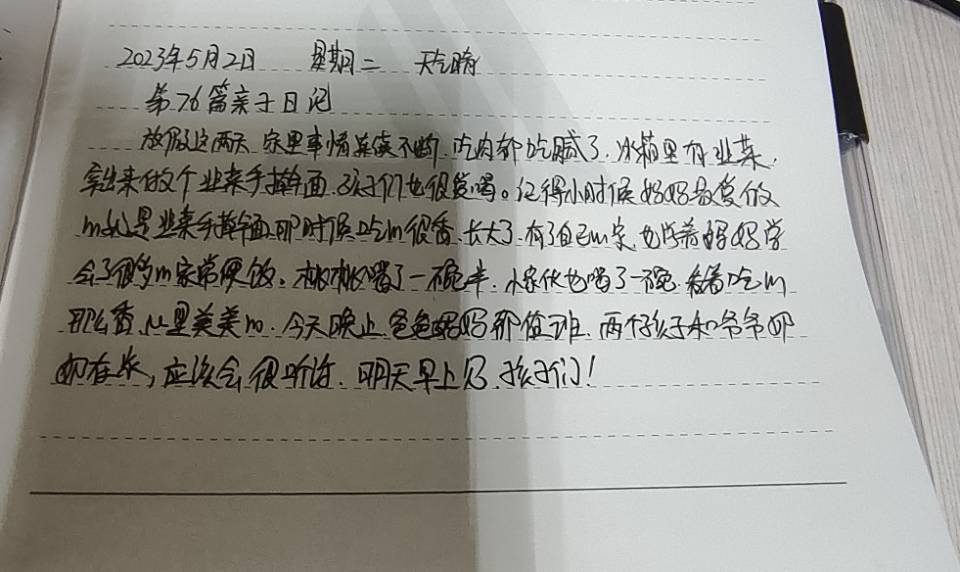 2023年5月2日 星期二 天气晴
第76篇亲子日记
放假这两天 家里事情连续不断 吃肉都吃腻了. 冰箱里有业菜.
拿出来做个业菜手擀面. 孩子们也很爱喝。记得小时候妈妈最爱做
m就是业菜手擀面.那时候吃m很香.长大了.有了自己m家.也学着妈妈学
会了很多m家常便饭. 桃桃喝了一碗半. 小家伙也喝了一碗. 看着吃m
那么香.心里美美m. 今天晚上 爸爸妈妈都值班. 两个孩子和爷爷奶
奶在家, 应该会很听话. 明天早上见.孩子们!